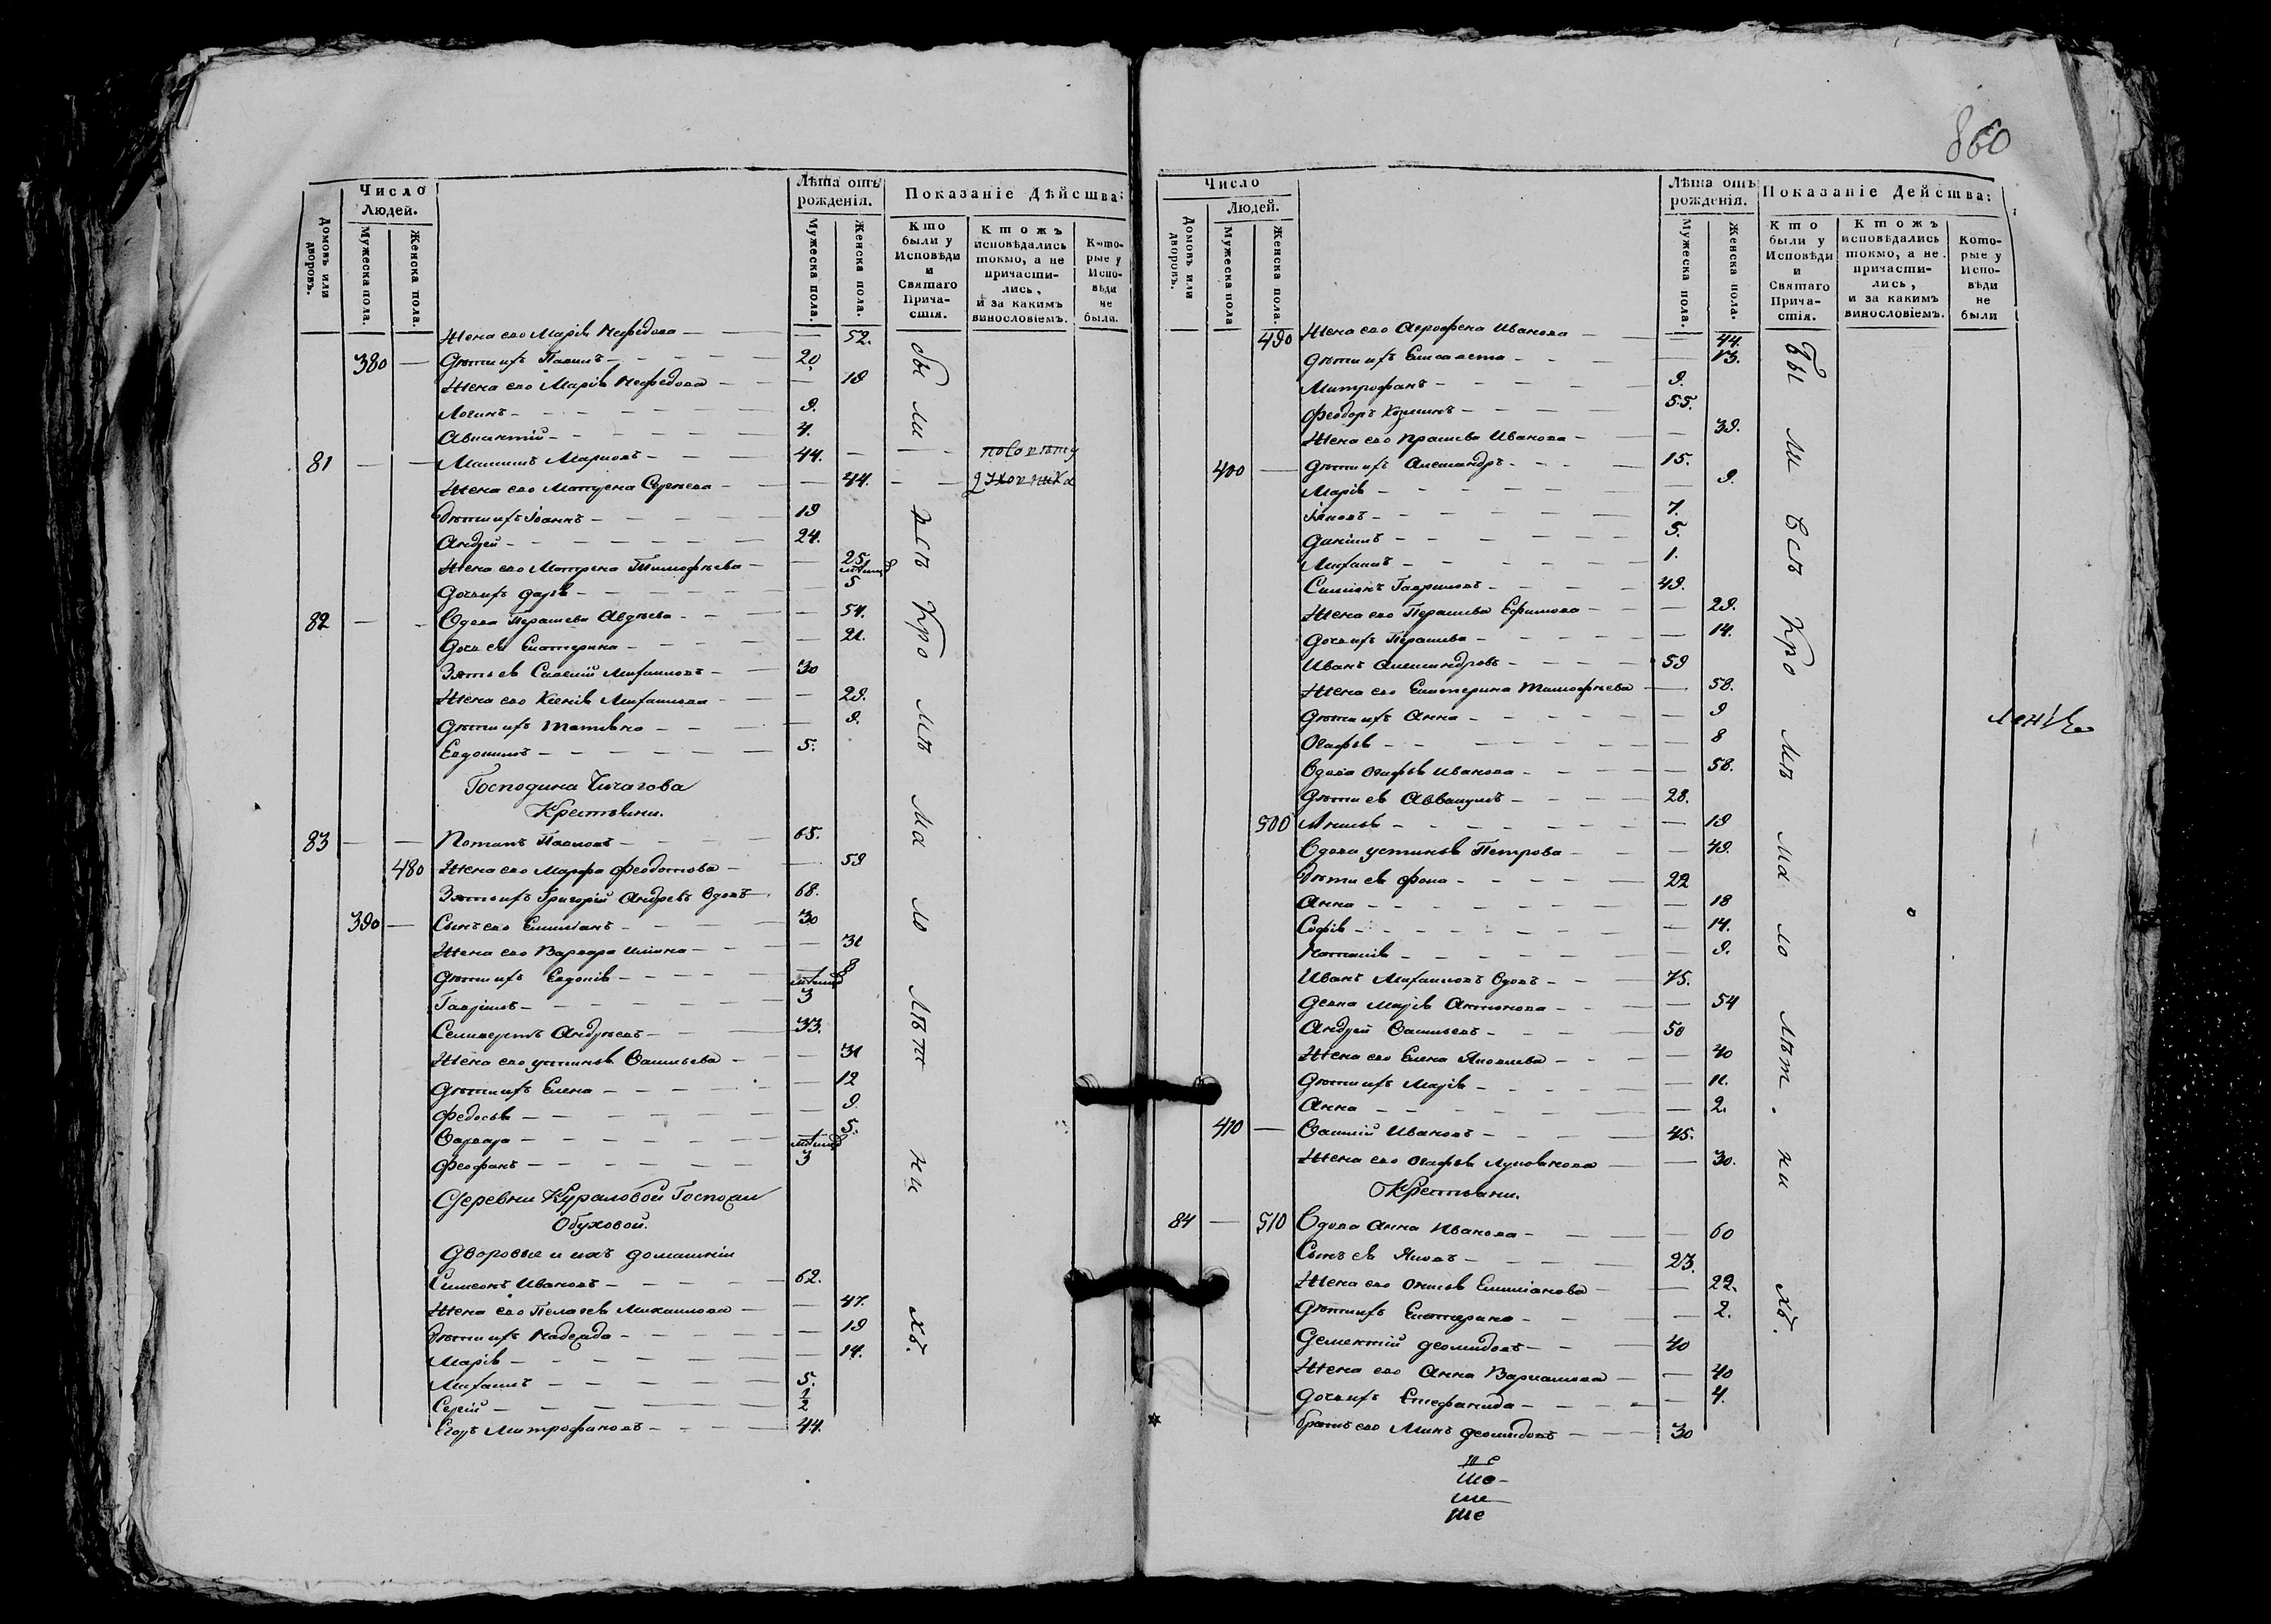 860
Число
Людей.
Домовъ или дворовъ.
Мужеска пола.
Женска пола.
Лѣта отъ рожденія.
Мужеска пола.
Женска пола.
Показаніе Дѣйства:
Кто были у Исповѣди и Святаго Причастія.
Ктожъ исповѣдались токмо, а не причастились, и за какимъ винословіемъ.
Которые у Исповѣди не были.
Жена его Марія Нефедова — 52.
380 — Дѣти ихъ Павелъ — 20.
Жена его Марія Нефедова — 19
Логинъ — 9.
4.
81 — Марковъ — 44. —
Жена его Матрена Сергѣева — 44. —
Дѣти ихъ Іоаннъ — 19
Андрей — 24.
Жена его Матрена Тимофѣева — 25
Дочь ихъ Дарья — 5
82 — Вдова Парасковья Авдѣева — 54.
Дочь ея Екатерина — 21.
Зять ея Савелій Михаиловъ — 30
Жена его Ксенія Михаилова — 29.
Дѣти ихъ Татьяна — 9.
Евдокимъ — 5.
Господина Чичагова
Крестьяни.
83 — Потапъ Павловъ — 65.
480 Жена его Марфа Федотова — 59
Зять ихъ Григорій Андреевъ вдовъ — 68.
390 — Сынъ его Емиліанъ — 30
Жена его Варвара Ильина — 31
Дѣти ихъ Евдокія — 8
Гавріилъ — 3
Селиверстъ Андреевъ — 33.
Жена его Устинья Васильева — 31
Дѣти ихъ Елена — 12
Федосья — 9.
Варвара — 5.
Феофанъ — 3
Деревни Кураловой Госпожи
Обуховой.
Дворовые и ихъ домашніи
Симеонъ Ивановъ — 62.
Жена его Пелагея Михаилова — 47.
Дѣти ихъ Надежда — 19
Марія — 14.
Михаилъ — 5.
Сергій — 2
Егоръ Митрофановъ — 44.
бы ли всѣ кро мѣ ма ло лѣт ни хъ.
Число
Людей.
Домовъ или дворовъ.
Мужеска пола
Женска пола.
Лѣта отъ рожденія.
Мужеска пола.
Женска пола.
Показаніе Действа:
Кто были у Исповѣди и Святаго Причастія.
Ктожъ исповѣдались токмо, а не причастились, и за какимъ винословіемъ.
Которые у Исповѣди не были
490 Жена его Агрофена Иванова — 44.
Дѣти ихъ Елисавета — 13.
Митрофанъ — 9.
Феодоръ Козминъ — 55.
Жена его Прасковья Иванова — 39.
400 — Дѣти ихъ Александръ — 15.
Марія — 9.
Іаковъ — 7.
Даніилъ — 5.
Михаилъ — 1.
Симіонъ Гавриловъ — 49.
Жена его Парасковья Ефимова — 29.
Дочь ихъ Парасковья — 14.
Иванъ Александровъ — 59
Жена его Екатерина Тимофѣева — 58.
Дѣти ихъ Анна — 9
Агафья — 8
Вдова Агафья Иванова — 58.
Дѣти ея Аввакумъ — 28.
500 — 19
Вдова Устинья Петрова — 49.
Дѣти ея Фока — 22
Анна — 18
Софія — 14.
Наталія — 9.
Иванъ Михаиловъ вдовъ — 75.
Девка Марія Антонова — 54
Андрей Васильевъ — 50
Жена его Елена Яковлева — 40
Дѣти ихъ Марія — 11.
Анна — 2.
410 — Василій Ивановъ — 45.
Жена его Агафья Лукоянова — 30.
Крестьяни.
84 — 510 Вдова Анна Иванова — 60
Сынъ ея Яковъ — 23.
Жена его Емиліанова — 22.
Дѣти ихъ Екатерина — 2.
Дементій Деомидовъ — 40
Жена его Анна Варламова — 40
Дочь ихъ Стефанида — 4.
братъ его Деомидовъ — 30
бы ли всѣ кро мѣ ма ло лѣт ни хъ.